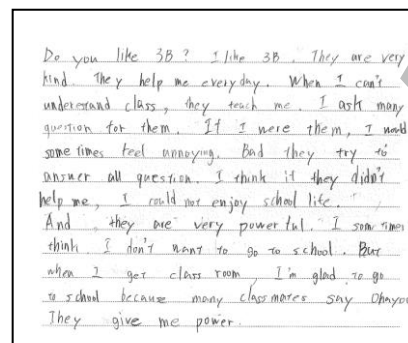 Do you like 3B? I like 3B. They are very
kind. They help me everyday. When I can't
underestand class, they teach me. I ask many
question for them. If I were them, I would
sometimes feel annoying. Bad they try to
answer all question. I think if they didn't
help me, I could not enjoy school life.
And they are very powerful. I some times
think I don't want to go to school. But
when I get class room, I'm glad to go
to school because many classmates say Ohayou
They give me power.